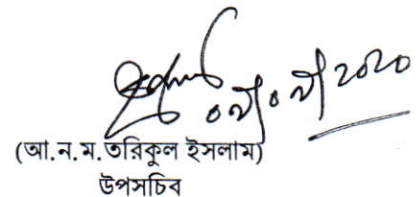 ২০২০
(আ.ন.ম.তরিকুল ইসলাম)
উপসচিব